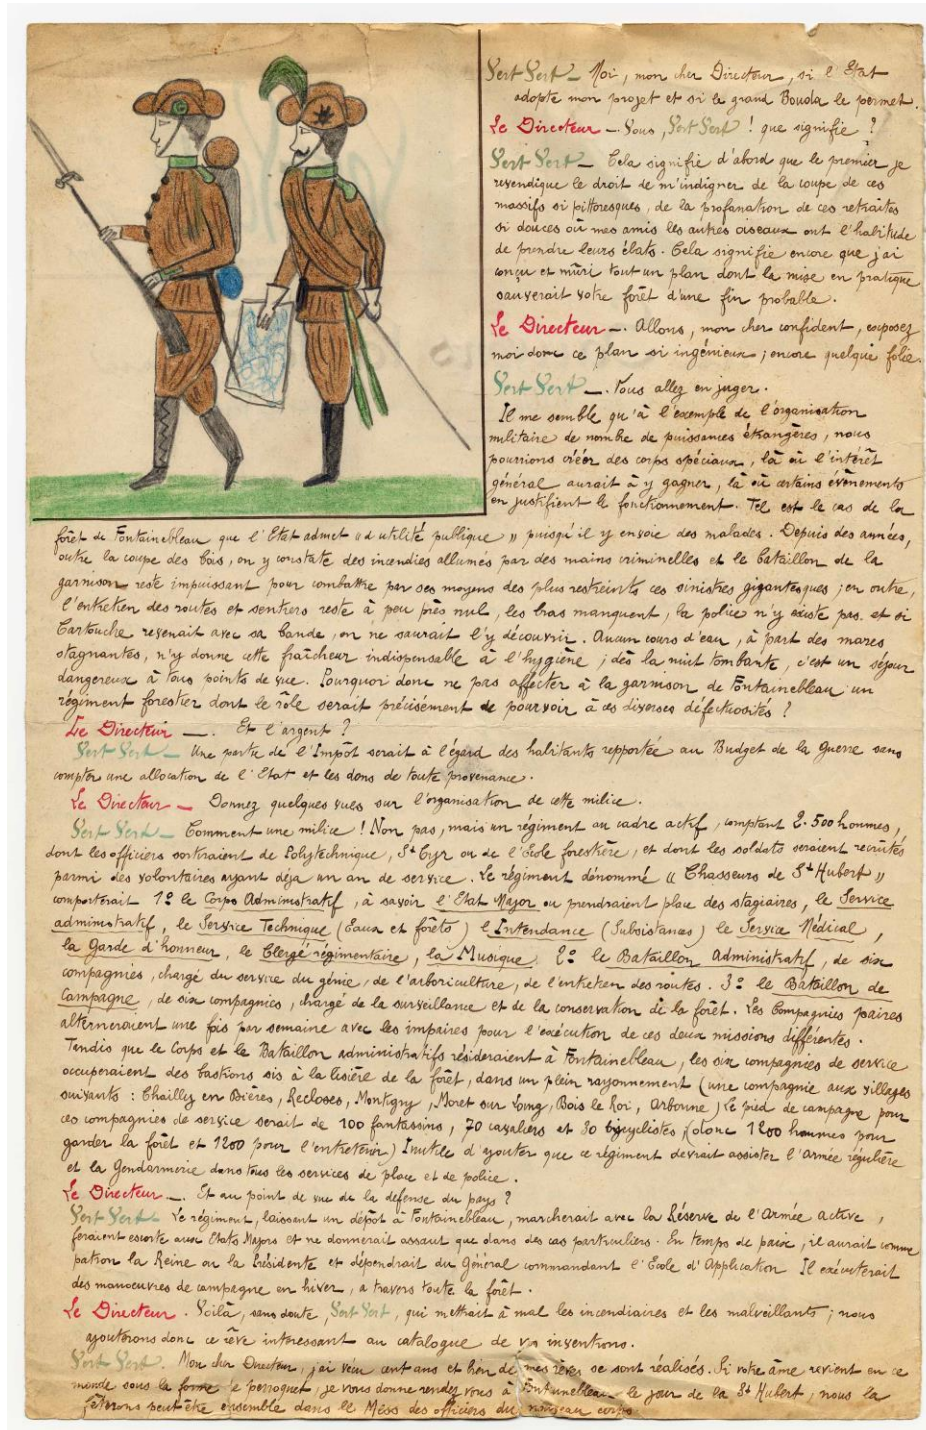 Vert Vert — Moi, mon cher Directeur, si l'Etat
adopte mon projet et si le grand Bouda le permet.
Le Directeur —. Vous, Vert Vert ! que signifie ?
Vert Vert — Cela signifie d'abord que le premier je
revendique le droit de m'indigner de la coupe de ces
massifs si pittoresques, de la profanation de ces retraites
si douces où mes amis les autres oiseaux ont l'habitude
de prendre leurs ébats. Cela signifie encore que j'ai
conçu et mûri tout un plan dont la mise en pratique
sauverait votre forêt d'une fin probable.
Le Directeur —. Allons, mon cher confident, exposez
moi donc ce plan si ingénieux ; encore quelque folie.
Vert Vert —. Vous allez en juger.
Il me semble qu'à l'exemple de l'organisation
militaire de nombre de puissances étrangères, nous
pourrions créer des corps spéciaux, là où l'intérêt
général aurait à y gagner, là où certains évènements
en justifient le fonctionnement. Tel est le cas de la
forêt de Fontainebleau que l'Etat admet "d'utilité publique" puisqu'il y envoie des malades. Depuis des années,
outre la coupe des bois, on y constate des incendies allumés par des mains criminelles et le bataillon de la
garnison reste impuissant pour combattre par ses moyens des plus restreints ces sinistres gigantesques ; en outre,
l'entretien des routes et sentiers reste à peu près nul, les bras manquent, la police n'y existe pas et si
Cartouche revenait avec sa bande, on ne saurait l'y découvrir. Aucun cours d'eau, à part des mares
stagnantes, n'y donne cette fraîcheur indispensable à l'hygiène ; dès la nuit tombante, c'est un séjour
dangereux à tous points de vue. Pourquoi donc ne pas affecter à la garnison de Fontainebleau un
régiment forestier dont le rôle serait précisément de pourvoir à ces diverses défectuosités ?
Le Directeur —. Et l'argent ?
Vert Vert — Une partie de l'Impôt serait à l'égard des habitants reportée au Budget de la Guerre sans
compter une allocation de l'Etat et les dons de toute provenance.
Le Directeur — Donnez quelques vues sur l'organisation de cette milice.
Vert Vert — Comment une milice ! Non pas, mais un régiment au cadre actif, comptant 2.500 hommes,
dont les officiers sortiraient de Polytechnique, St Cyr ou de l'école forestière, et dont les soldats seraient recrutés
parmi des volontaires ayant déja un an de service. Le régiment dénommé "Chasseurs de St Hubert"
comporterait 1º le Corps Administratif, à savoir l'Etat Major ou prendraient place des stagiaires, le Service
administratif, le Service Technique (Eaux et forêts) l'Intendance (Subsistances) le Service Médical,
la Garde d'honneur, le Clergé régimentaire, la Musique. 2º le Bataillon Administratif, de six
compagnies, chargé du service du génie, de l'arboriculture, de l'entretien des routes. 3º le Bataillon de
Campagne, de six compagnies, chargé de la surveillance et de la conservation de la forêt. Les Compagnies paires
alterneraient une fois par semaine avec les impaires pour l'exécution de ces deux missions différentes.
Tandis que le Corps et le Bataillon administratifs résideraient à Fontainebleau, les six compagnies de service
occuperaient des bastions sis à la lisière de la forêt, dans un plein rayonnement (une compagnie aux villages
suivants : Chailly en Bières, Recloses, Montigny, Moret sur Loing, Bois le Roi, Arbonne) Le pied de campagne pour
ces compagnies de service serait de 100 fantassins, 70 cavaliers et 30 bicyclistes, (donc 1200 hommes pour
garder la forêt et 1200 pour l'entretenir) Inutile d'ajouter que ce régiment devrait assister l'armée régulière
et la Gendarmerie dans tous les services de place et de police.
Le Directeur —. Et au point de vue de la défense du pays ?
Vert Vert — Le régiment, laissant un dépôt à Fontainebleau, marcherait avec la Réserve de l'Armée active,
feraient escorte aux Etats Majors et ne donnerait assaut que dans des cas particuliers. En temps de paix, il aurait comme
patron la Reine ou la Présidente et dépendrait du Général commandant l'Ecole d'Application Il exécuterait
des manoeuvres de campagne en hiver, à travers toute la forêt.
Le Directeur. Voilà, sans doute, Vert Vert, qui mettrait à mal les incendiaires et les malveillants ; nous
ajouterons donc ce rêve intéressant au catalogue de vos inventions.
Vert Vert. Mon cher Directeur, j'ai vécu cent ans et bien de mes rêves se sont réalisés. Si votre âme revient en ce
monde sous la forme de perroquet, je vous donne rendez vous à Fontainebleau le jour de la St Hubert, nous la
fêterons peut être ensemble dans le Mess des officiers du nouveau corps